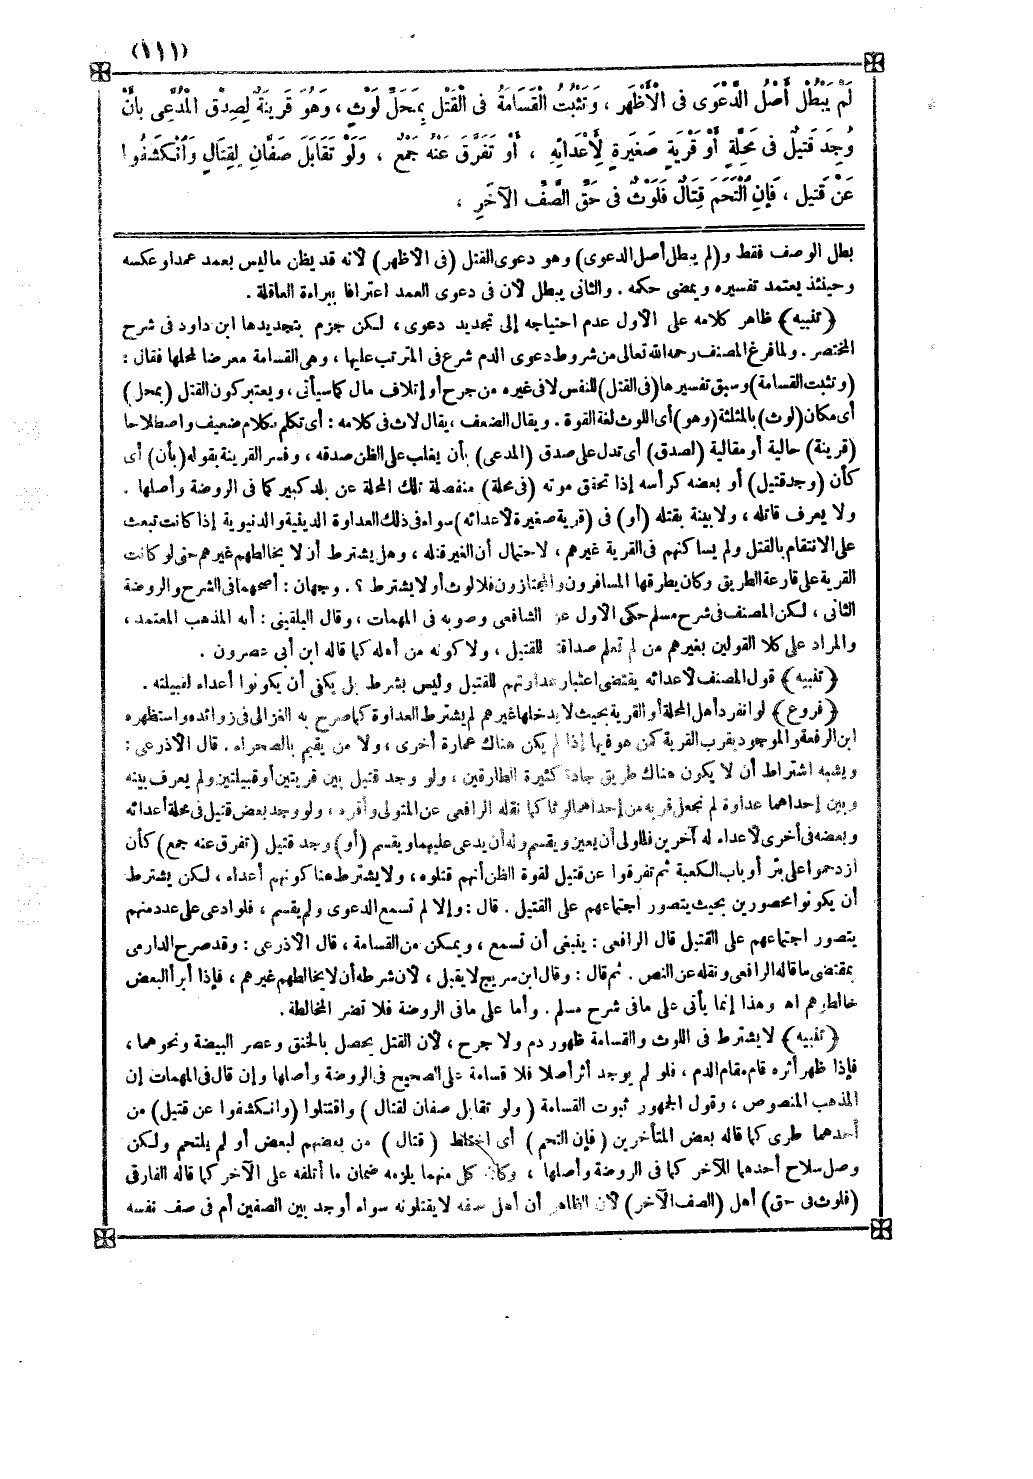 (١١١)
لَمْ يَبْطُلْ أَصْلُ الدَّعْوَى فِى الْأَظْهَرِ ، وَتَثْبُتُ الْقَسَامَةُ فِى الْقَتْلِ بِمَحَلِّ لَوْثٍ ، وَهُوَ قَرِينَةٌ لِصِدْقِ الْمُدَّعِى بِأَنْ
وُجِدَ قَتِيلٌ فِى مَحِلَّةٍ أَوْ قَرْيَةٍ صَغِيرَةٍ لِأَعْدَائِهِ ، أَوْ تَفَرَّقَ عَنْهُ جَمْعٌ ، وَلَوْ تَقَابَلَ صَفَّانِ لِقِتَالٍ وَانْكَشَفُوا
عَنْ قَتِيلٍ ، فَإِنِ الْتَحَمَ قِتَالٌ فَلَوْثٌ فِى حَقِّ الصَّفِّ الآخَرِ ،
بطل الوصف فقط و(لم يبطل أصل الدعوى) وهو دعوى القتل (فى الأظهر) لأنه قد يظن ماليس بعمد عمدا وعكسه
وحينئذ يعتمد تفسيره ويمضى حكمه . والثانى يبطل لأن فى دعوى العمد اعترافا ببراءة العاقلة .
﴿تنبيه﴾ ظاهر كلامه على الأول عدم احتياجه إلى تجديد دعوى ، لكن جزم بتجديدها ابن داود فى شرح
المختصر . ولما فرغ المصنف رحمه الله تعالى من شروط دعوى الدم شرع فى المترتب عليها ، وهى القسامة معرضا لمحلها فقال :
(وتثبت القسامة) وسبق تفسيرها (فى القتل) للنفس لافى غيره من جرح أو إتلاف مال كما سيأتى ، ويعتبر كون القتل (بمحل)
أى مكان (لوث) بالمثلثة (وهو) أى اللوث لغة القوة . ويقال الضعف ، يقال لاث فى كلامه : أى تكلم بكلام ضعيف واصطلاحا
(قرينة) حالية أو مقالية (لصدق) أى تدل على صدق (المدعى) بأن يغلب على الظن صدقه ، وفسر القرينة بقوله (بأن) أى
كأن (وجد قتيل) أو بعضه كرأسه إذا تحقق موته (فى محلة) منفصلة تلك المحلة عن بلد كبير كما فى الروضة وأصلها .
ولا يعرف قاتله ، ولا بينة بقتله (أو) فى (قرية صغيرة لأعدائه) سواء فى ذلك العداوة الدينية والدنيوية إذا كانت تبعث
على الانتقام بالقتل ولم يساكنهم فى القرية غيرهم ، لاحتمال أن الغير قتله ، وهل يشترط أن لا يخالطهم غيرهم حتى لو كانت
القرية على قارعة الطريق وكان يطرقها المسافرون والمجتازون فلا لوث أو لا يشترط ؟ . وجهان : أصحهما فى الشرح والروضة
الثانى ، لكن المصنف فى شرح مسلم حكى الأول عن الشافعى وصوبه فى المهمات ، وقال البلقينى : أنه المذهب المعتمد ،
والمراد على كلا القولين بغيرهم من لم تعلم صداقته للقتيل ، ولا كونه من أهله كما قاله ابن أبى عصرون .
﴿تنبيه﴾ قول المصنف لأعدائه يقتضى اعتبار عداوتهم للقتيل وليس بشرط بل يكفى أن يكونوا أعداء لقبيلته .
﴿فروع﴾ لو انفرد أهل المحلة أو القرية بحيث لا يدخلها غيرهم لم يشترط العداوة كما صرح به الغزالى فى زوائده واستظهره
ابن الرفعة والموجود بقرب القرية كمن هو فيها إذا لم يكن هناك عمارة أخرى ، ولا من يقيم بالصحراء . قال الأذرعى :
ويشبه اشتراط أن لا يكون هناك طريق جادة كثيرة الطارقين ، ولو وجد قتيل بين قريتين أو قبيلتين ولم يعرف بينه
وبين إحداهما عداوة لم نجعل قربه من إحداهما لوثا كما نقله الرافعى عن المتولى وأقره ، ولو وجد بعض قتيل فى محلة أعدائه
وبعضه فى أخرى لأعداء له آخرين فللولى أن يعين ويقسم وله أن يدعى عليهما ويقسم (أو) وجد قتيل (تفرق عنه جمع) كأن
ازدحموا على بئر أو باب الكعبة ثم تفرقوا عن قتيل لقوة الظن أنهم قتلوه ، ولا يشترط هنا كونهم أعداء ، لكن يشترط
أن يكونوا محصورين بحيث يتصور اجتماعهم على القتيل . قال : وإلا لم تسمع الدعوى ولم يقسم ، فلو ادعى على عدد منهم
يتصور اجتماعهم على القتيل قال الرافعى : ينبغى أن تسمع ، ويمكن من القسامة ، قال الأذرعى : وقد صرح الدارمى
بمقتضى ما قاله الرافعى ونقله عن النص . ثم قال : وقال ابن سريج لا يقبل ، لأن شرطه أن لا يخالطهم غيرهم ، فإذا أبرأ البعض
خالطهم غيرهم اه‍ وهذا إنما يأتى على مافى شرح مسلم . وأما على مافى الروضة فلا تضر المخالطة .
﴿تنبيه﴾ لا يشترط فى اللوث والقسامة ظهور دم ولا جرح ، لأن القتل يحصل بالخنق وعصر البيضة ونحوهما ،
فإذا ظهر أثره قام مقام الدم ، فلو لم يوجد أثر أصلا فلا قسامة على الصحيح فى الروضة وأصلها وإن قال فى المهمات إن
المذهب المنصوص ، وقول الجمهور ثبوت القسامة (ولو تقابل صفان لقتال) واقتتلوا (وانكشفوا عن قتيل) من
أحدهما طرى كما قاله بعض المتأخرين (فإن التحم) أى اختلط (قتال) من بعضهم لبعض أو لم يلتحم ولكن
وصل سلاح أحدهما للآخر كما فى الروضة وأصلها ، وكان كل منهما يلزمه ضمان ما أتلفه على الآخر كما قاله الفارقى
(فلوث فى حق) أهل (الصف الآخر) لأن الظاهر أن أهل صفه لا يقتلونه سواء أوجد بين الصفين أم فى صف نفسه